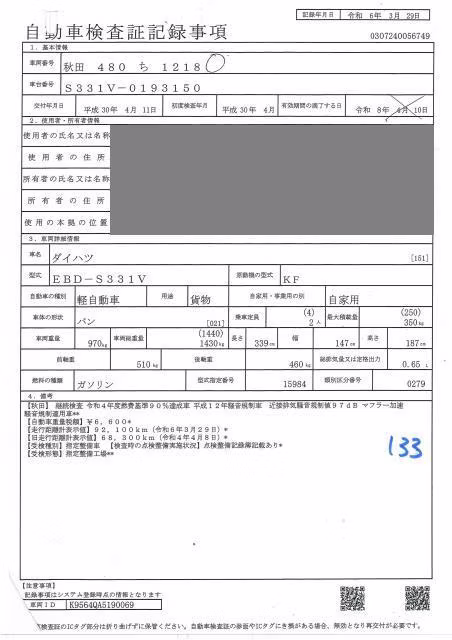 記録年月日 令和 6年 3月 29日
自動車検査証記録事項
0307240056749
1. 基本情報
車両番号 秋田 480 ち 1218
車台番号 S331V-0193150
交付年月日 平成 30年 4月 11日 初度検査年月 平成 30年 4月 有効期間の満了する日 令和 8年 4月 10日
2. 使用者・所有者情報
使用者の氏名又は名称
使用者の住所
所有者の氏名又は名称
所有者の住所
使用の本拠の位置
3. 車両詳細情報
車名 ダイハツ [151]
型式 EBD-S331V 原動機の型式 KF
自動車の種別 軽自動車 用途 貨物 自家用・事業用の別 自家用
車体の形状 バン [021] 乗車定員 (4) 2人 最大積載量 (250) 350kg
車両重量 970kg 車両総重量 (1440) 1430kg 長さ 339cm 幅 147cm 高さ 187cm
前軸重 510kg 後軸重 460kg 総排気量又は定格出力 0.65 L
燃料の種類 ガソリン 型式指定番号 15984 類別区分番号 0279
4. 備考
【秋田】 継続検査 令和4年度燃費基準90%達成車 平成12年騒音規制車 近接排気騒音規制値97dB マフラー加速
騒音規制適用車**
【自動車重量税額】¥6,600*
【走行距離計表示値】92,100km (令和6年3月29日)*
【旧走行距離計表示値】68,300km (令和4年4月8日)*
【受検種別】指定整備車 【検査時の点検整備実施状況】点検整備記録簿記載あり*
【受検形態】指定整備工場**
133
【注意事項】
記録事項はシステム登録時点の情報となります
車両ID K9564QA5190069
検査証のICタグ部分は折り曲げずに保管ください。自動車検査証の券面やICタグにき損がある場合、無効となり再交付が必要です。